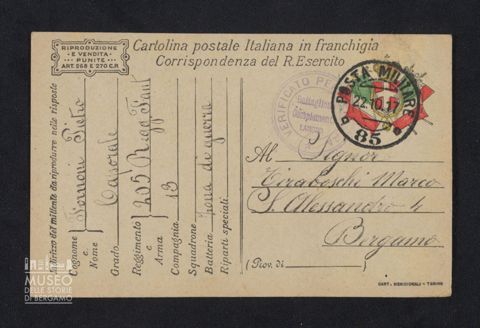 RIPRODUZIONE
E VENDITA
PUNITE
ART. 268 E 270 C.P.
Cartolina postale Italiana in franchigia
Corrispondenza del R. Esercito
VERIFICATO PE
Battaglione
POSTA MILITARE
22.10.17
85
Al Signor
Tiraboschi Marco
S. Alessandro 4
Bergamo
(Prov. di )
CART. MERIDIONALI - TARINO
Indirizzo del mittente da riprodurre nella risposta
Cognome e Nome Fornoni Pietro
Grado Caporale
Reggimento e Arma 205 Regg. Fant
Compagnia 13
Squadrone
Batteria zona di guerra
Riparti speciali
MUSEO
DELLE STORIE
DI BERGAMO